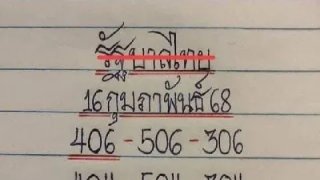 รัฐบาลไทย
16 กุมภาพันธ์ 68
406 - 506 - 306